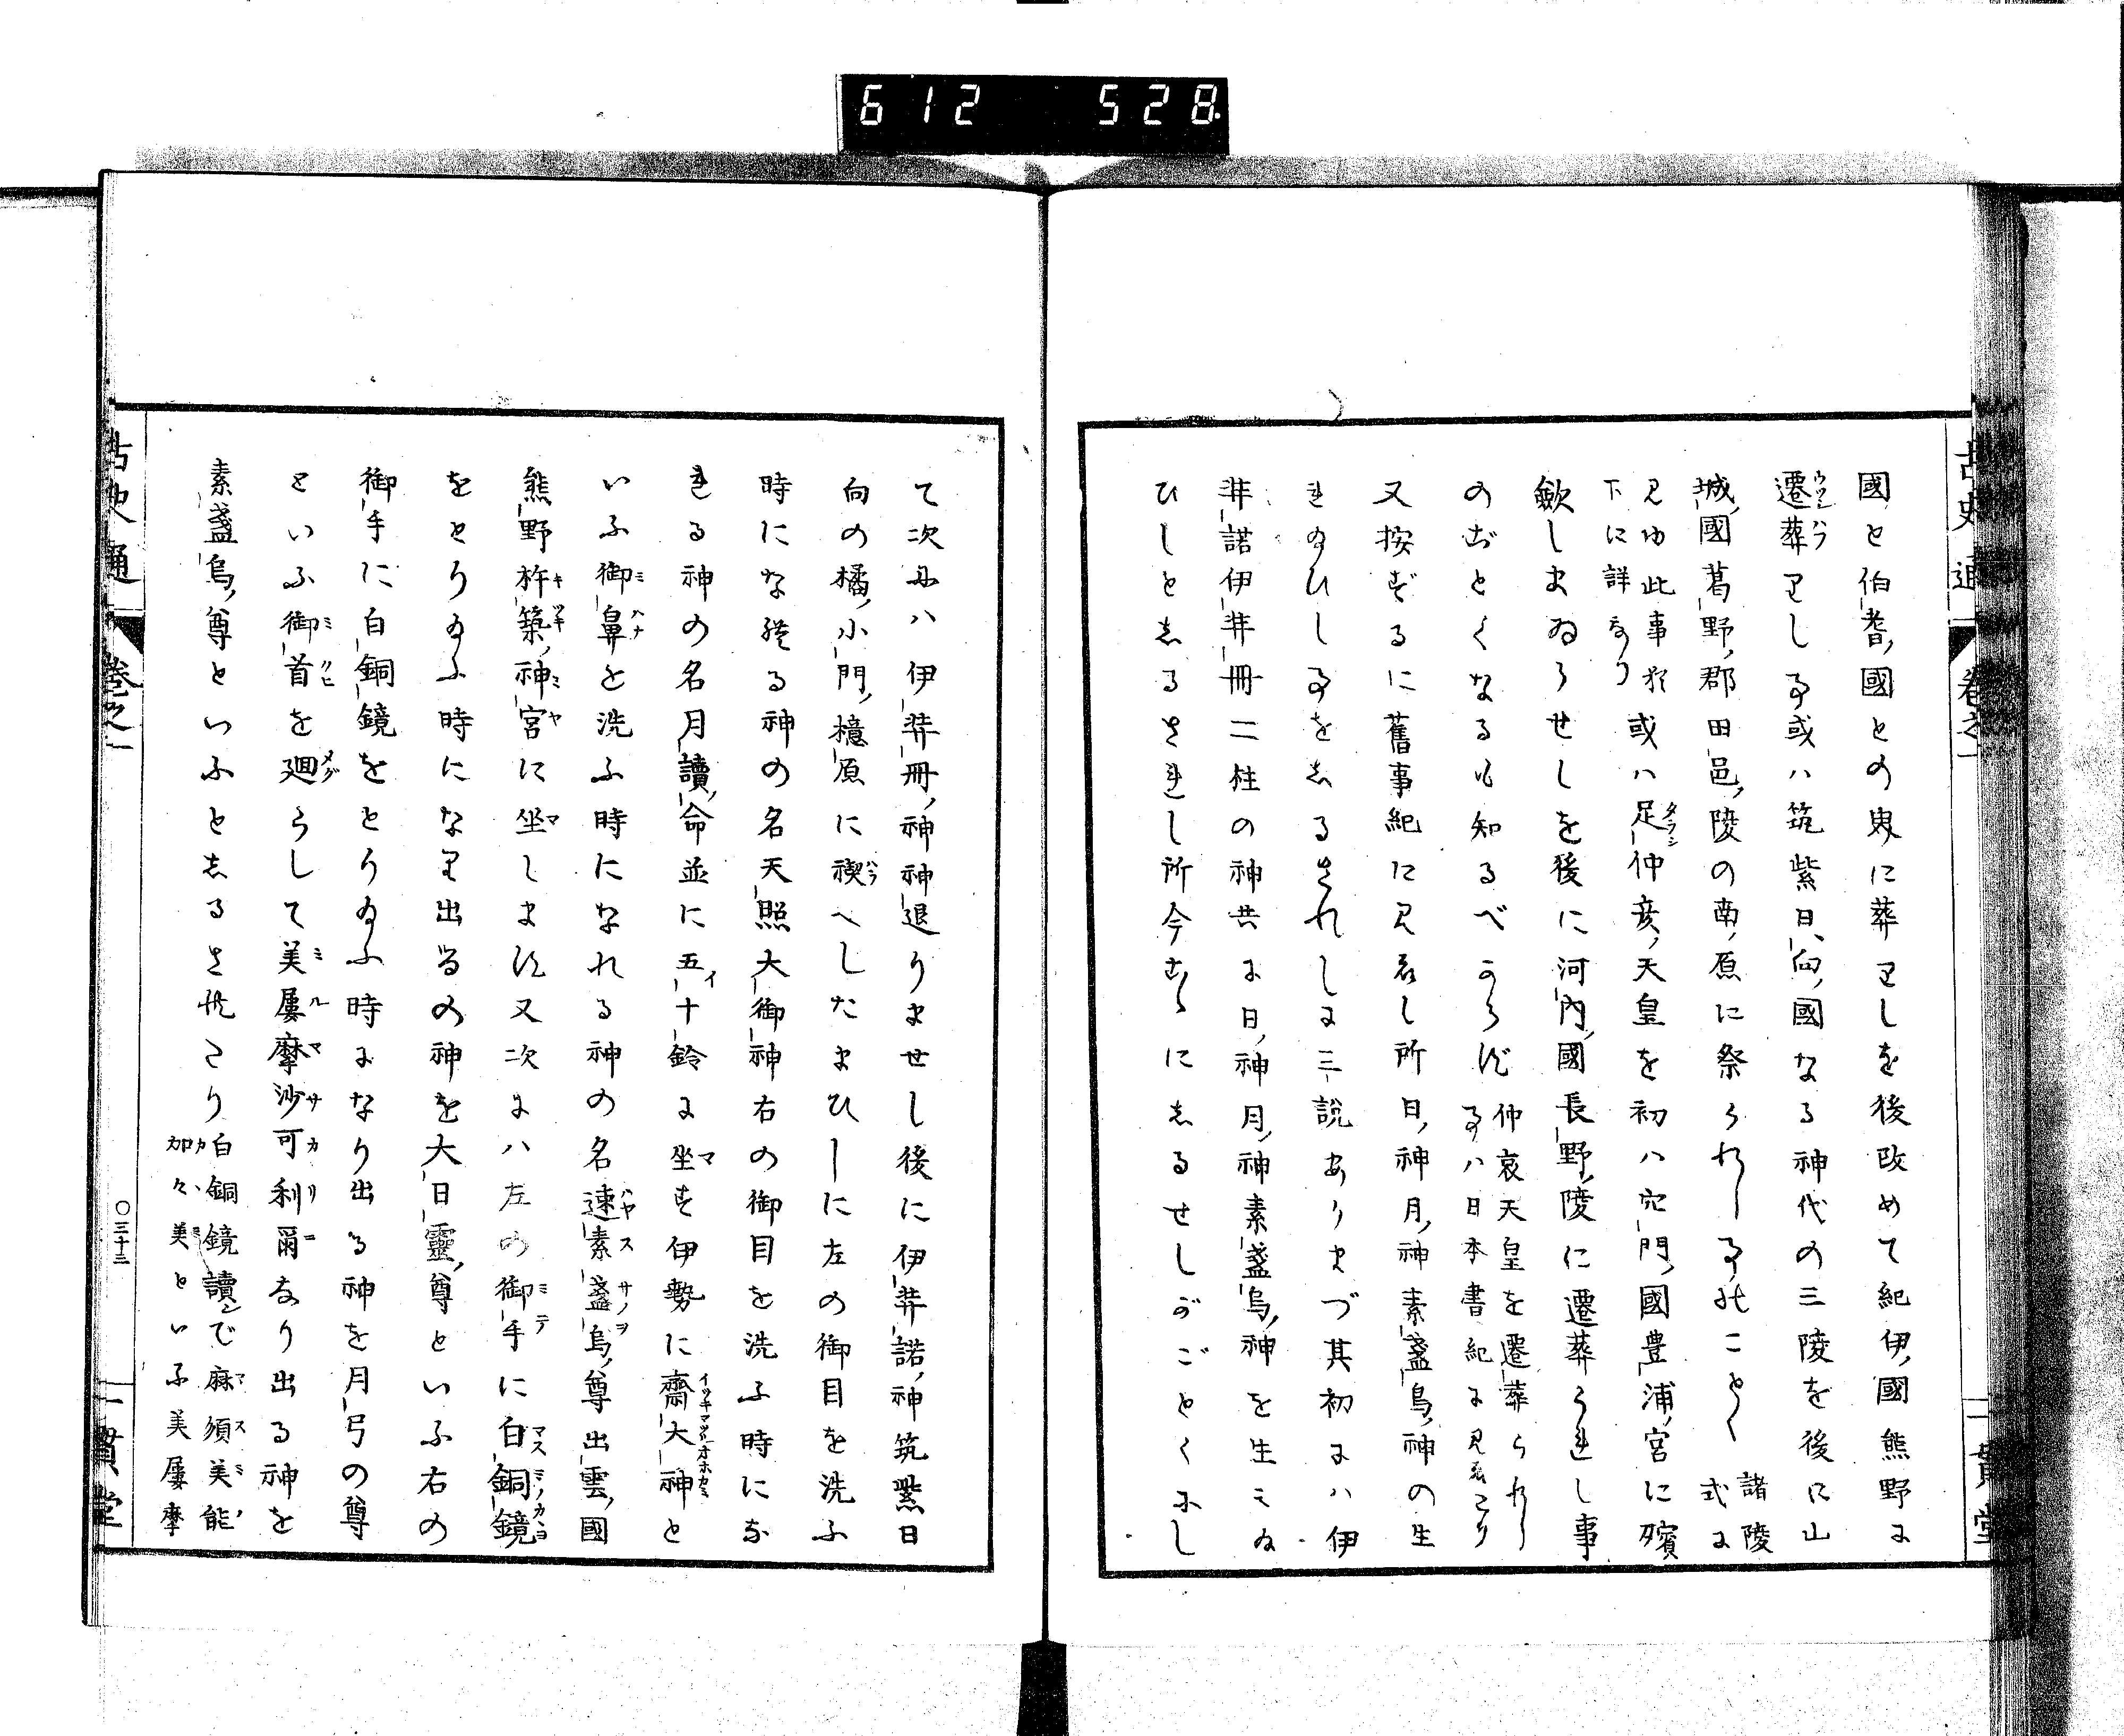 612 528
古史通 卷之一 一貫堂
國と伯耆國との堺に葬りしを後改めて紀伊國熊野に
遷葬りし事或ハ筑紫日向國なる神代の三陵を後に山
城國葛野郡田邑陵の南原に祭られし事のことく諸陵式に
見ゆ此事猶下に詳なり或ハ足仲彦天皇を初ハ穴門國豊浦宮に殯
斂しまゐらせしを後に河内國長野陵に遷葬られし事
のごとくなるも知るべからず仲哀天皇を遷葬られし事ハ日本書紀に見えたり
又按ずるに舊事紀に見えし所日神月神素盞烏神の生
れ給ひし事をしるされしに三説ありまづ其初にハ伊
弉諾伊弉冊二柱の神共に日神月神素盞烏神を生み給
ひしとしるされし所今こゝにしるせしがごとくにし
て次にハ伊弉冊神神退りませし後に伊弉諾神筑紫日
向の橘小門檍原に禊へしたまひしに左の御目を洗ふ
時になれる神の名天照大御神右の御目を洗ふ時にな
れる神の名月讀命並に五十鈴に坐す伊勢に齋大神と
いふ御鼻を洗ふ時になれる神の名速素盞烏尊出雲國
熊野杵築神宮に坐します又次にハ左の御手に白銅鏡
をとり給ふ時になり出るの神を大日孁尊といふ右の
御手に白銅鏡をとり給ふ時になり出る神を月弓の尊
といふ御首を廻らして美屢摩沙可利爾なり出る神を
素盞烏尊といふとしるされたり白銅鏡讀で麻須美能加々美といふ美屢摩
古史通 卷之一 〇三十三 一貫堂